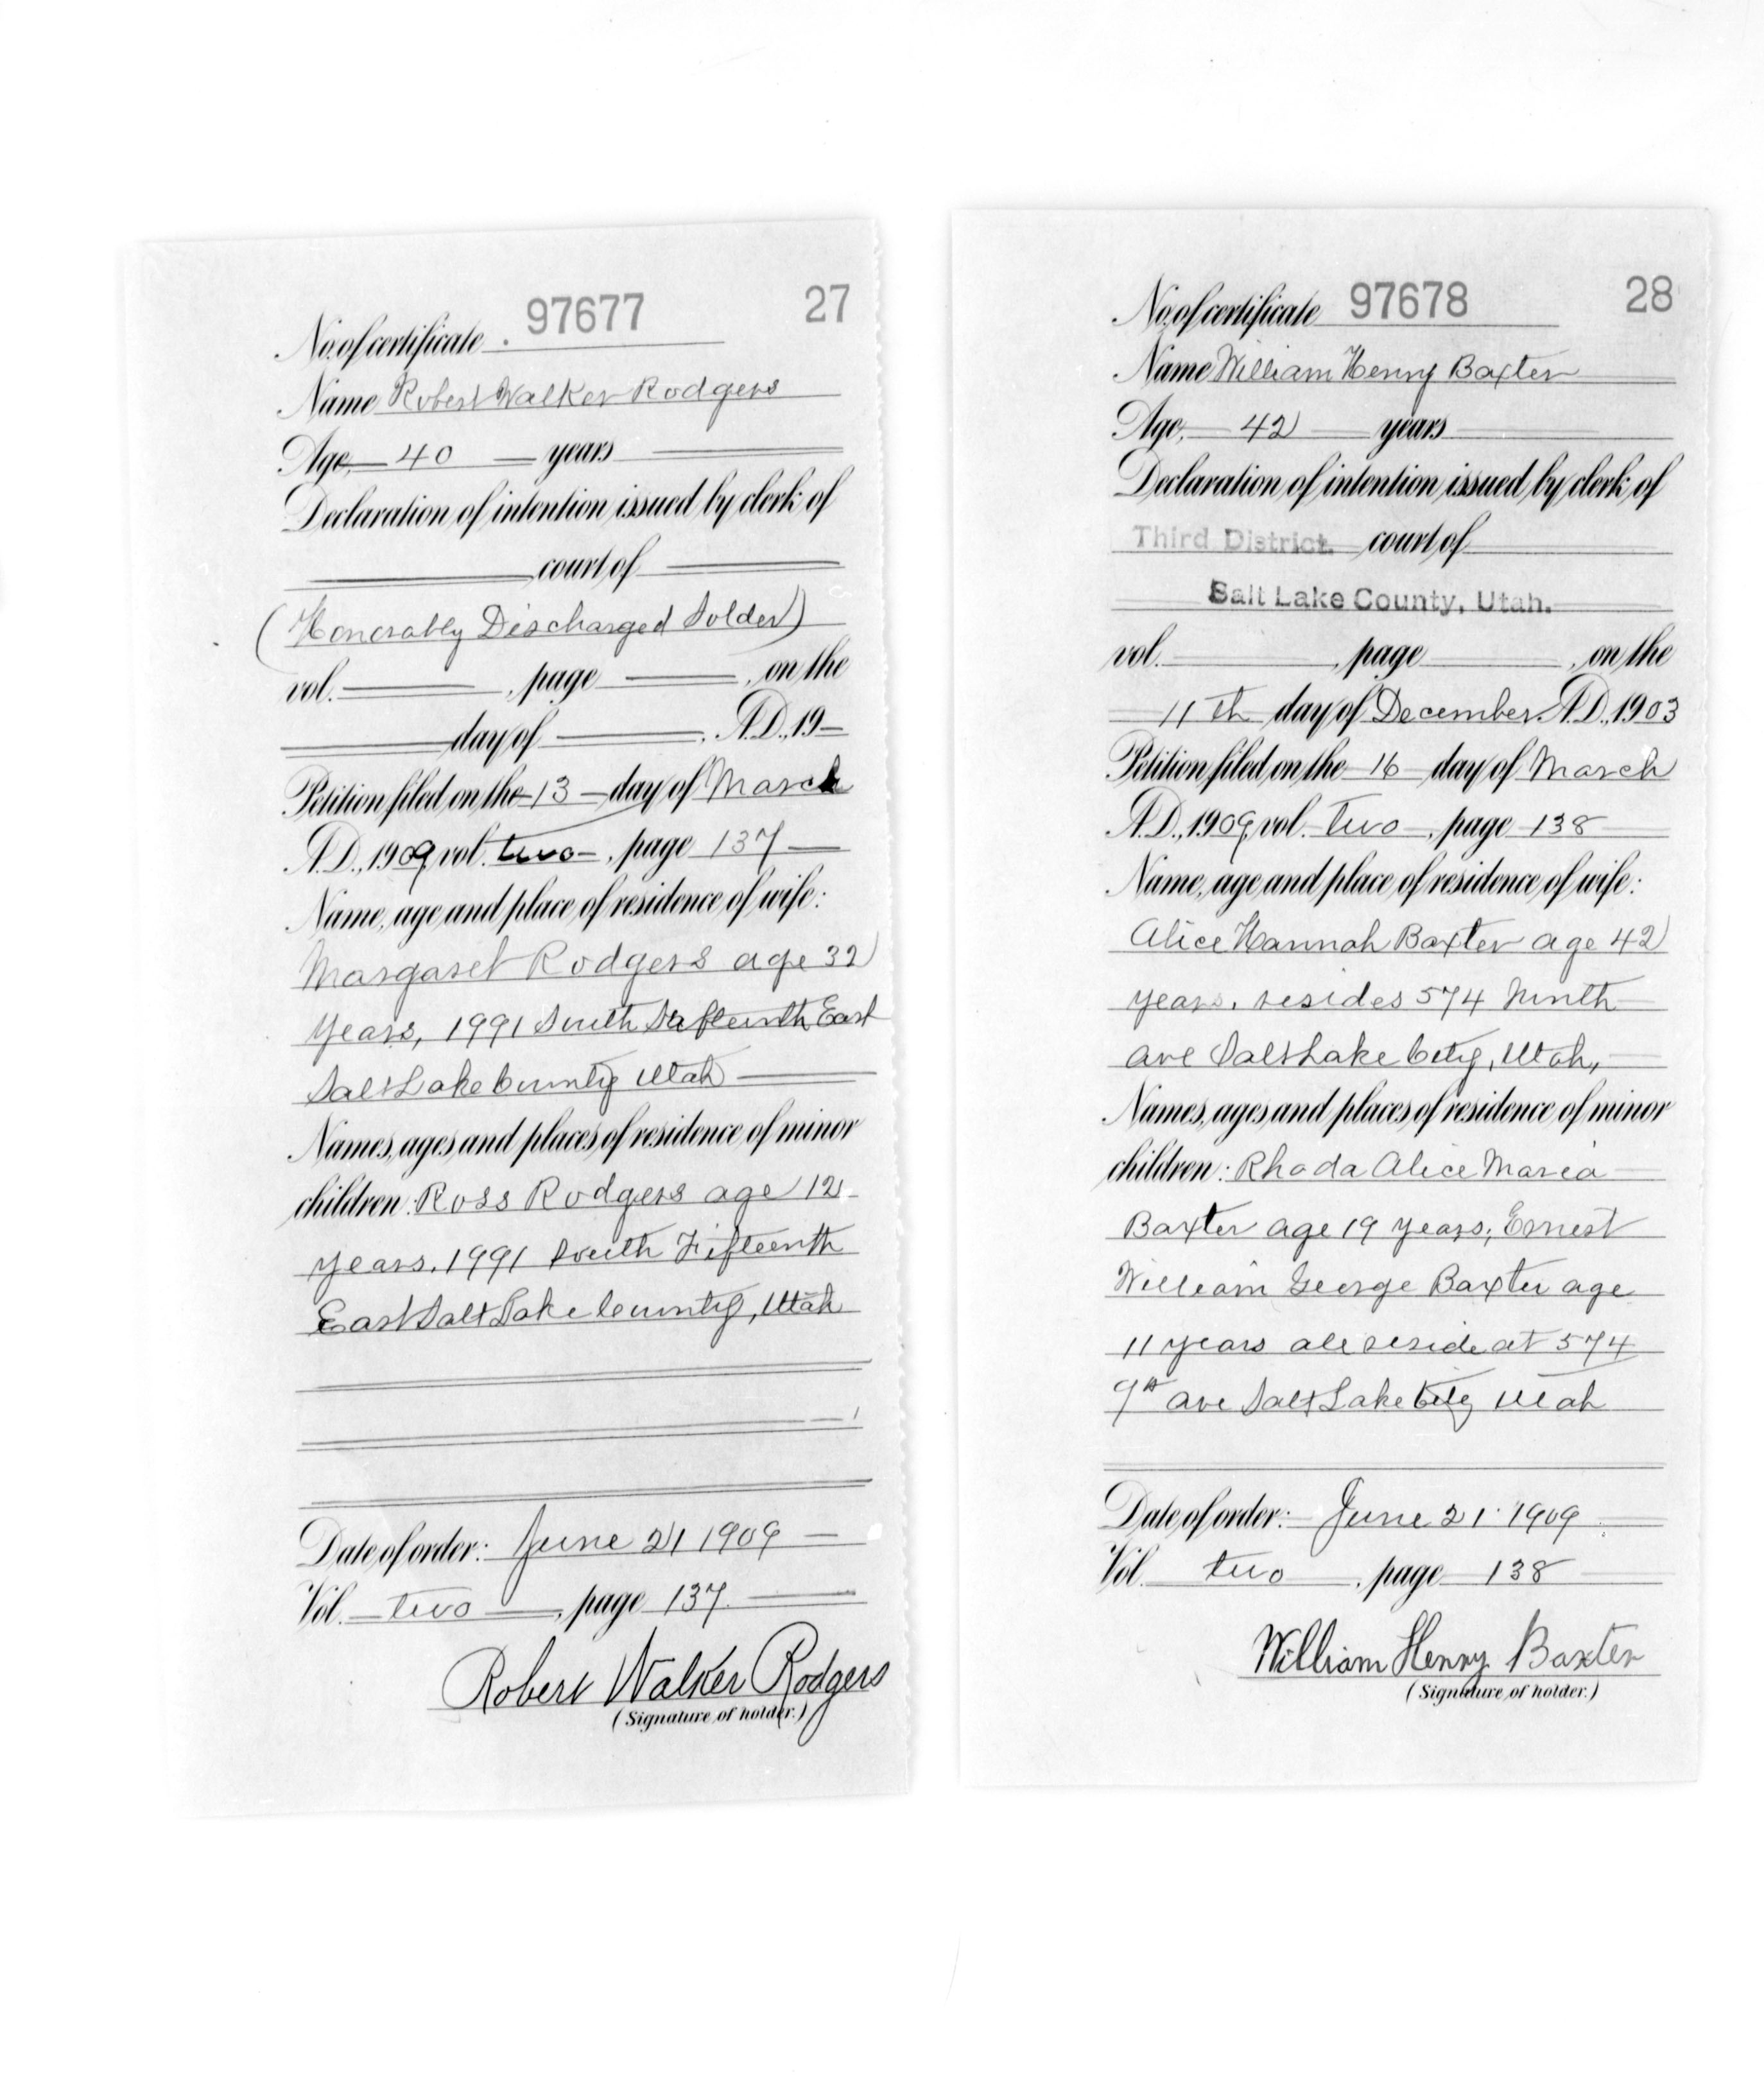 97677 27
No. of certificate
Name Robert Walker Rodgers
Age, 40 years
Declaration of intention issued by clerk of
court of
(Honorably Discharged Solder)
vol. , page , on the
day of , A.D., 19
Petition filed on the 13 day of March
A.D., 1909, vol. two , page 137
Name, age and place of residence of wife:
Margaret Rodgers age 32
years, 1991 South East
Salt Lake County Utah
Names, ages and places of residence of minor
children: Ross Rodgers age 12
years. 1991 South Fifteenth
East Salt Lake County, Utah
Date of order: June 21 1909
Vol. two , page 137
Robert Walker Rodgers
(Signature of holder.)
No. of certificate 97678 28
Name William Henry Baxter
Age, 42 years
Declaration of intention issued by clerk of
Third District. court of
Salt Lake County, Utah.
vol. , page , on the
11th day of December A.D., 1903
Petition filed on the 16 day of March
A.D., 1909, vol. two , page 138
Name, age and place of residence of wife:
Alice Hannah Baxter age 42
years. resides 574 Ninth
ave Salt Lake City, Utah,
Names, ages and places of residence of minor
children: Rhoda Alice Maria
Baxter age 19 years; Ernest
William George Baxter age
11 years all reside at 574
9th ave Salt Lake City Utah
Date of order: June 21 1909
Vol. two , page 138
William Henry Baxter
(Signature of holder.)